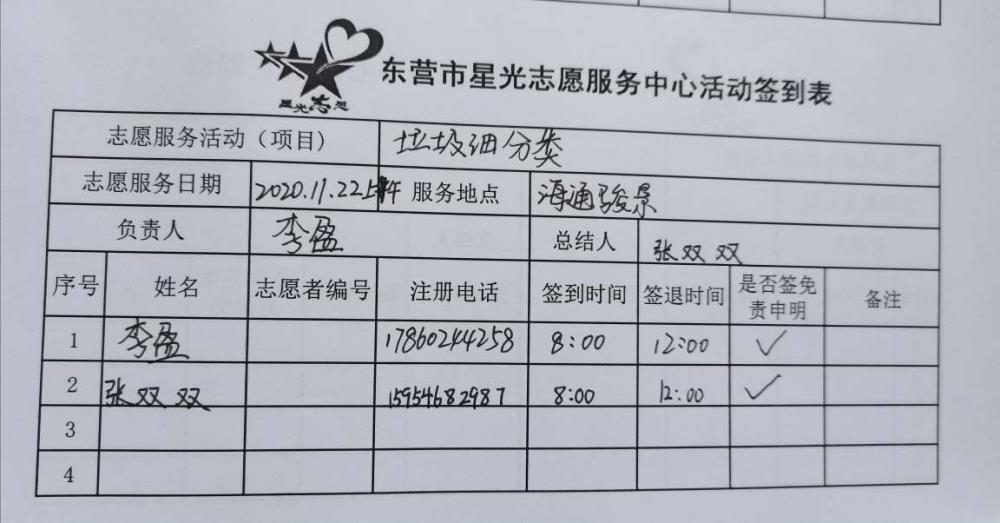 星光志愿
东营市星光志愿服务中心活动签到表
志愿服务活动（项目） 垃圾细分类
志愿服务日期 2020.11.22上午 服务地点 海通骏景
负责人 李盈 总结人 张双双
序号 姓名 志愿者编号 注册电话 签到时间 签退时间 是否签免责申明 备注
1 李盈 17860244258 8:00 12:00 ✓
2 张双双 15954682987 8:00 12:00 ✓
3
4